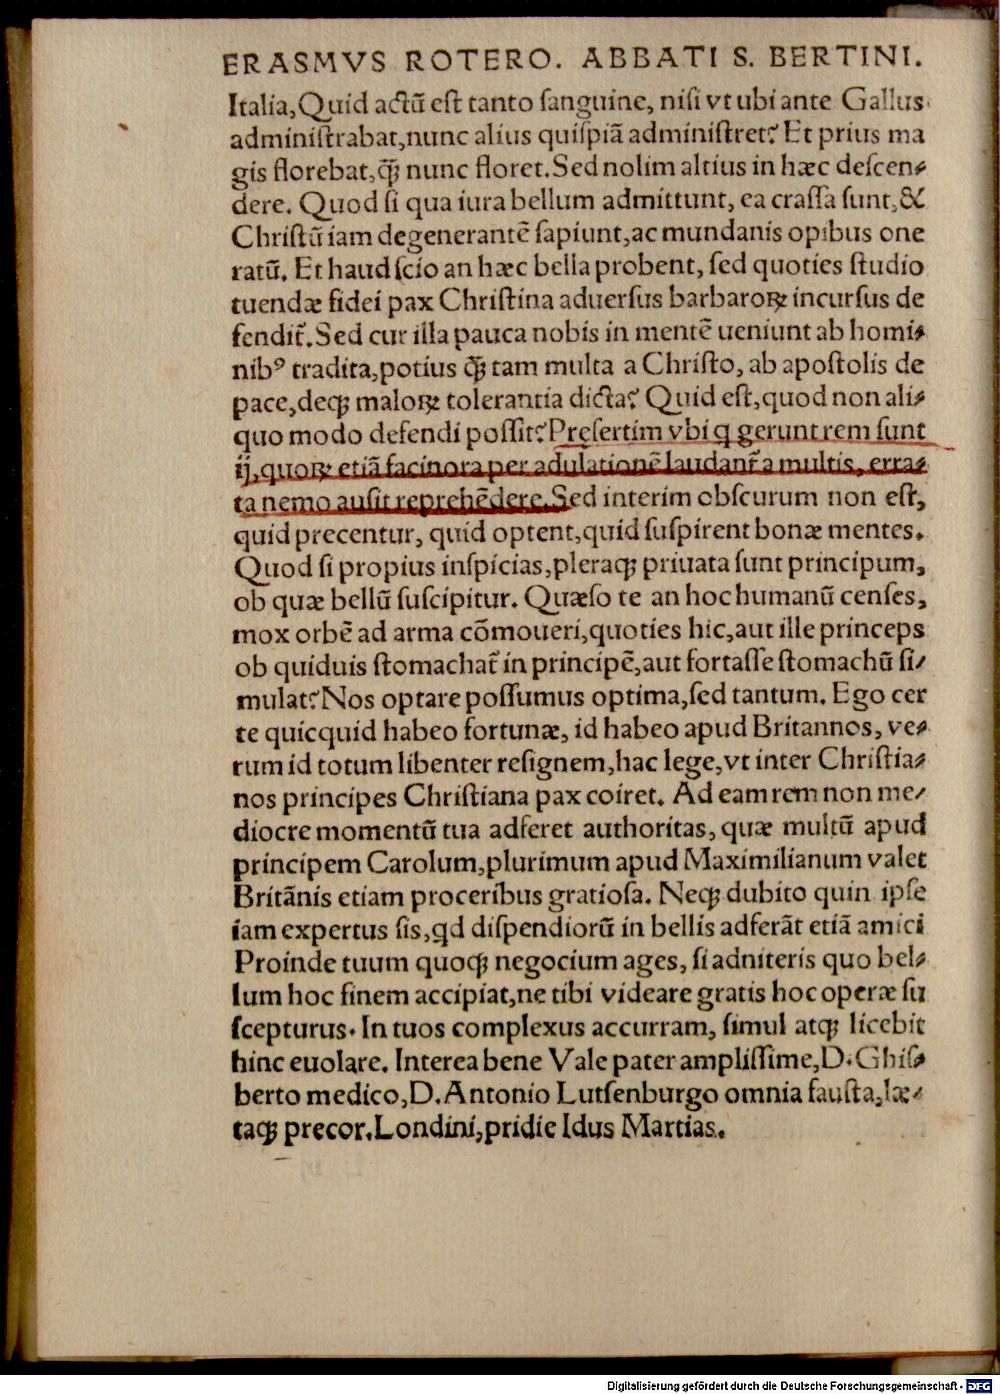 ERASMVS ROTERO. ABBATI S. BERTINI.
Italia,Quid actũ est tanto sanguine, nisi vt ubi ante Gallus
administrabat,nunc alius quispiã administret? Et prius ma
gis florebat,q̃ꝫ nunc floret.Sed nolim altius in hæc descen⸗
dere. Quod si qua iura bellum admittunt, ea crassa sunt,&
Christũ iam degenerantẽ sapiunt,ac mundanis opibus one
ratũ. Et haud scio an hæc bella probent, sed quoties studio
tuendæ fidei pax Christina aduersus barbaroꝝ incursus de
fendit̃.Sed cur illa pauca nobis in mentẽ ueniunt ab homi⸗
nibꝰ tradita,potius q̃ꝫ tam multa a Christo, ab apostolis de
pace,deqꝫ maloꝝ tolerantia dicta? Quid est,quod non ali⸗
quo modo defendi possit?Pręsertim vbi q gerunt rem sunt
ij,quoꝝ etiã facinora per adulationẽ laudant̃ a multis, erra⸗
ta nemo ausit reprehẽdere.Sed interim obscurum non est,
quid precentur, quid optent,quid suspirent bonæ mentes.
Quod si propius inspicias,pleraqꝫ priuata sunt principum,
ob quæ bellũ suscipitur. Quæso te an hoc humanũ censes,
mox orbẽ ad arma cõmoueri,quoties hic,aut ille princeps
ob quiduis stomachat̃ in principẽ,aut fortasse stomachũ si⸗
mulat?Nos optare possumus optima,sed tantum. Ego cer
te quicquid habeo fortunæ, id habeo apud Britannos, ve⸗
rum id totum libenter resignem,hac lege,vt inter Christia⸗
nos principes Christiana pax coiret. Ad eam rem non me⸗
diocre momentũ tua adferet authoritas, quæ multũ apud
principem Carolum,plurimum apud Maximilianum valet
Britãnis etiam proceribus gratiosa. Neqꝫ dubito quin ipse
iam expertus sis,qd dispendiorũ in bellis adferãt etiã amici
Proinde tuum quoqꝫ negocium ages, si adniteris quo bel⸗
lum hoc finem accipiat,ne tibi videare gratis hoc operæ su
scepturus. In tuos complexus accurram, simul atqꝫ licebit
hinc euolare. Interea bene Vale pater amplissime,D.Ghis⸗
berto medico,D.Antonio Lutsenburgo omnia fausta,læ⸗
taqꝫ precor.Londini,pridie Idus Martias.
Digitalisierung gefördert durch die Deutsche Forschungsgemeinschaft - DFG